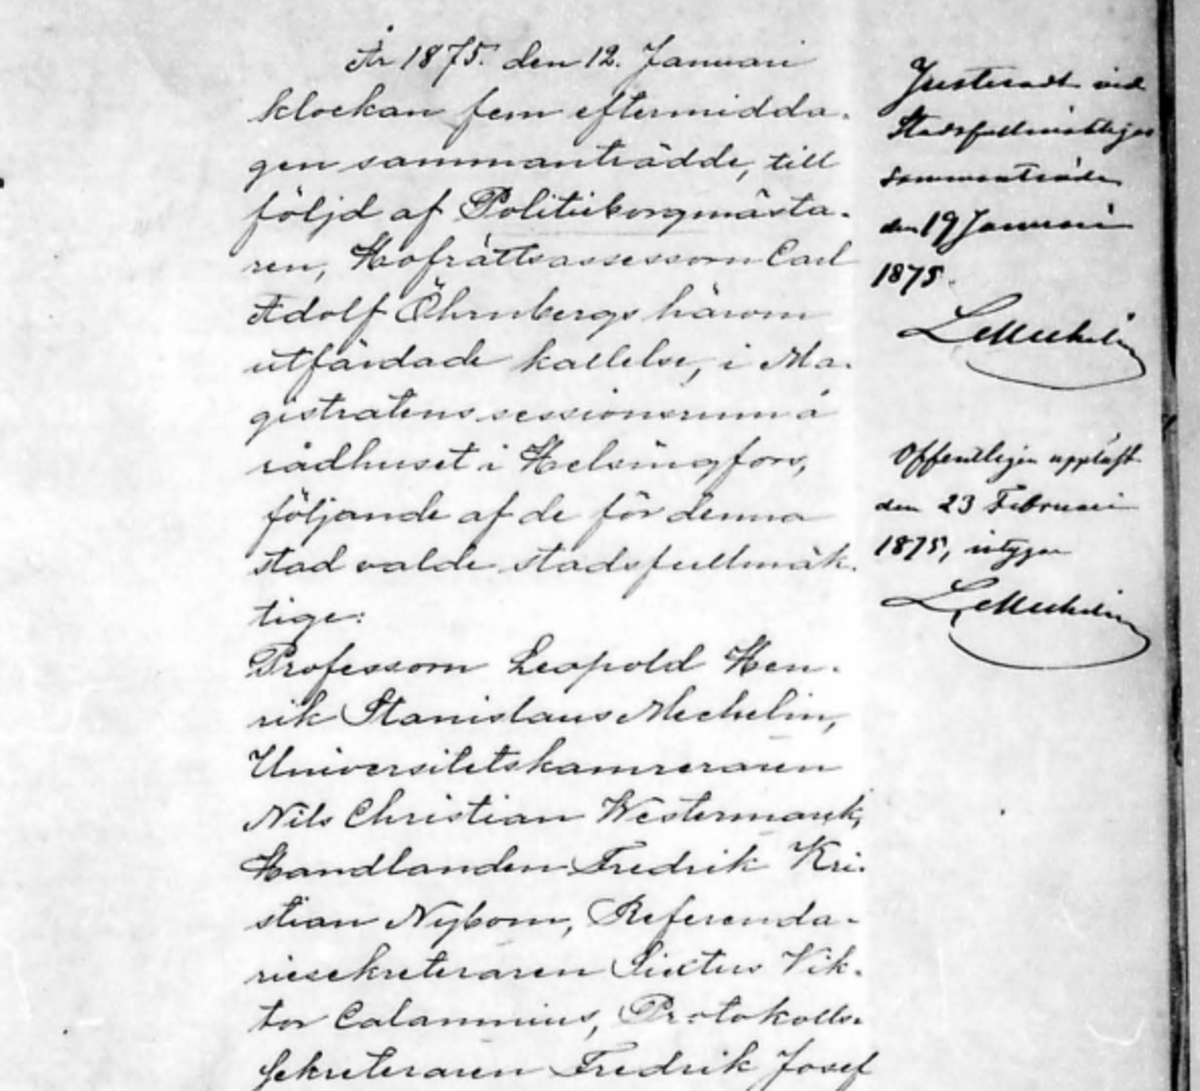 År 1875. den 12. Januari
klockan fem eftermidda-
gen sammanträdde, till
följd af Politieborgmästa-
ren, Hofrättsassessorn Carl
Adolf Öhrnbergs härom
utfärdade kallelse, i Ma-
gistratens sessionsrum å
rådhuset i Helsingfors,
följande af de för denna
stad valde stadsfullmäk-
tige:
Professorn Leopold Hen-
rik Stanislaus Mechelin,
Universitetskamreraren
Nils Christian Westermarck,
Handlanden Fredrik Kri-
stian Nybom, Referenda-
riesekreteraren Sixtus Vik-
tor Calamnius, Protokolls-
sekreteraren Fredrik Josef
Justeradt vid
Stadsfullmäktiges
sammanträde
den 19 Januari
1875.
L Mechelin
Offentligen uppläst
den 23 Februari
1875, intygar
L Mechelin